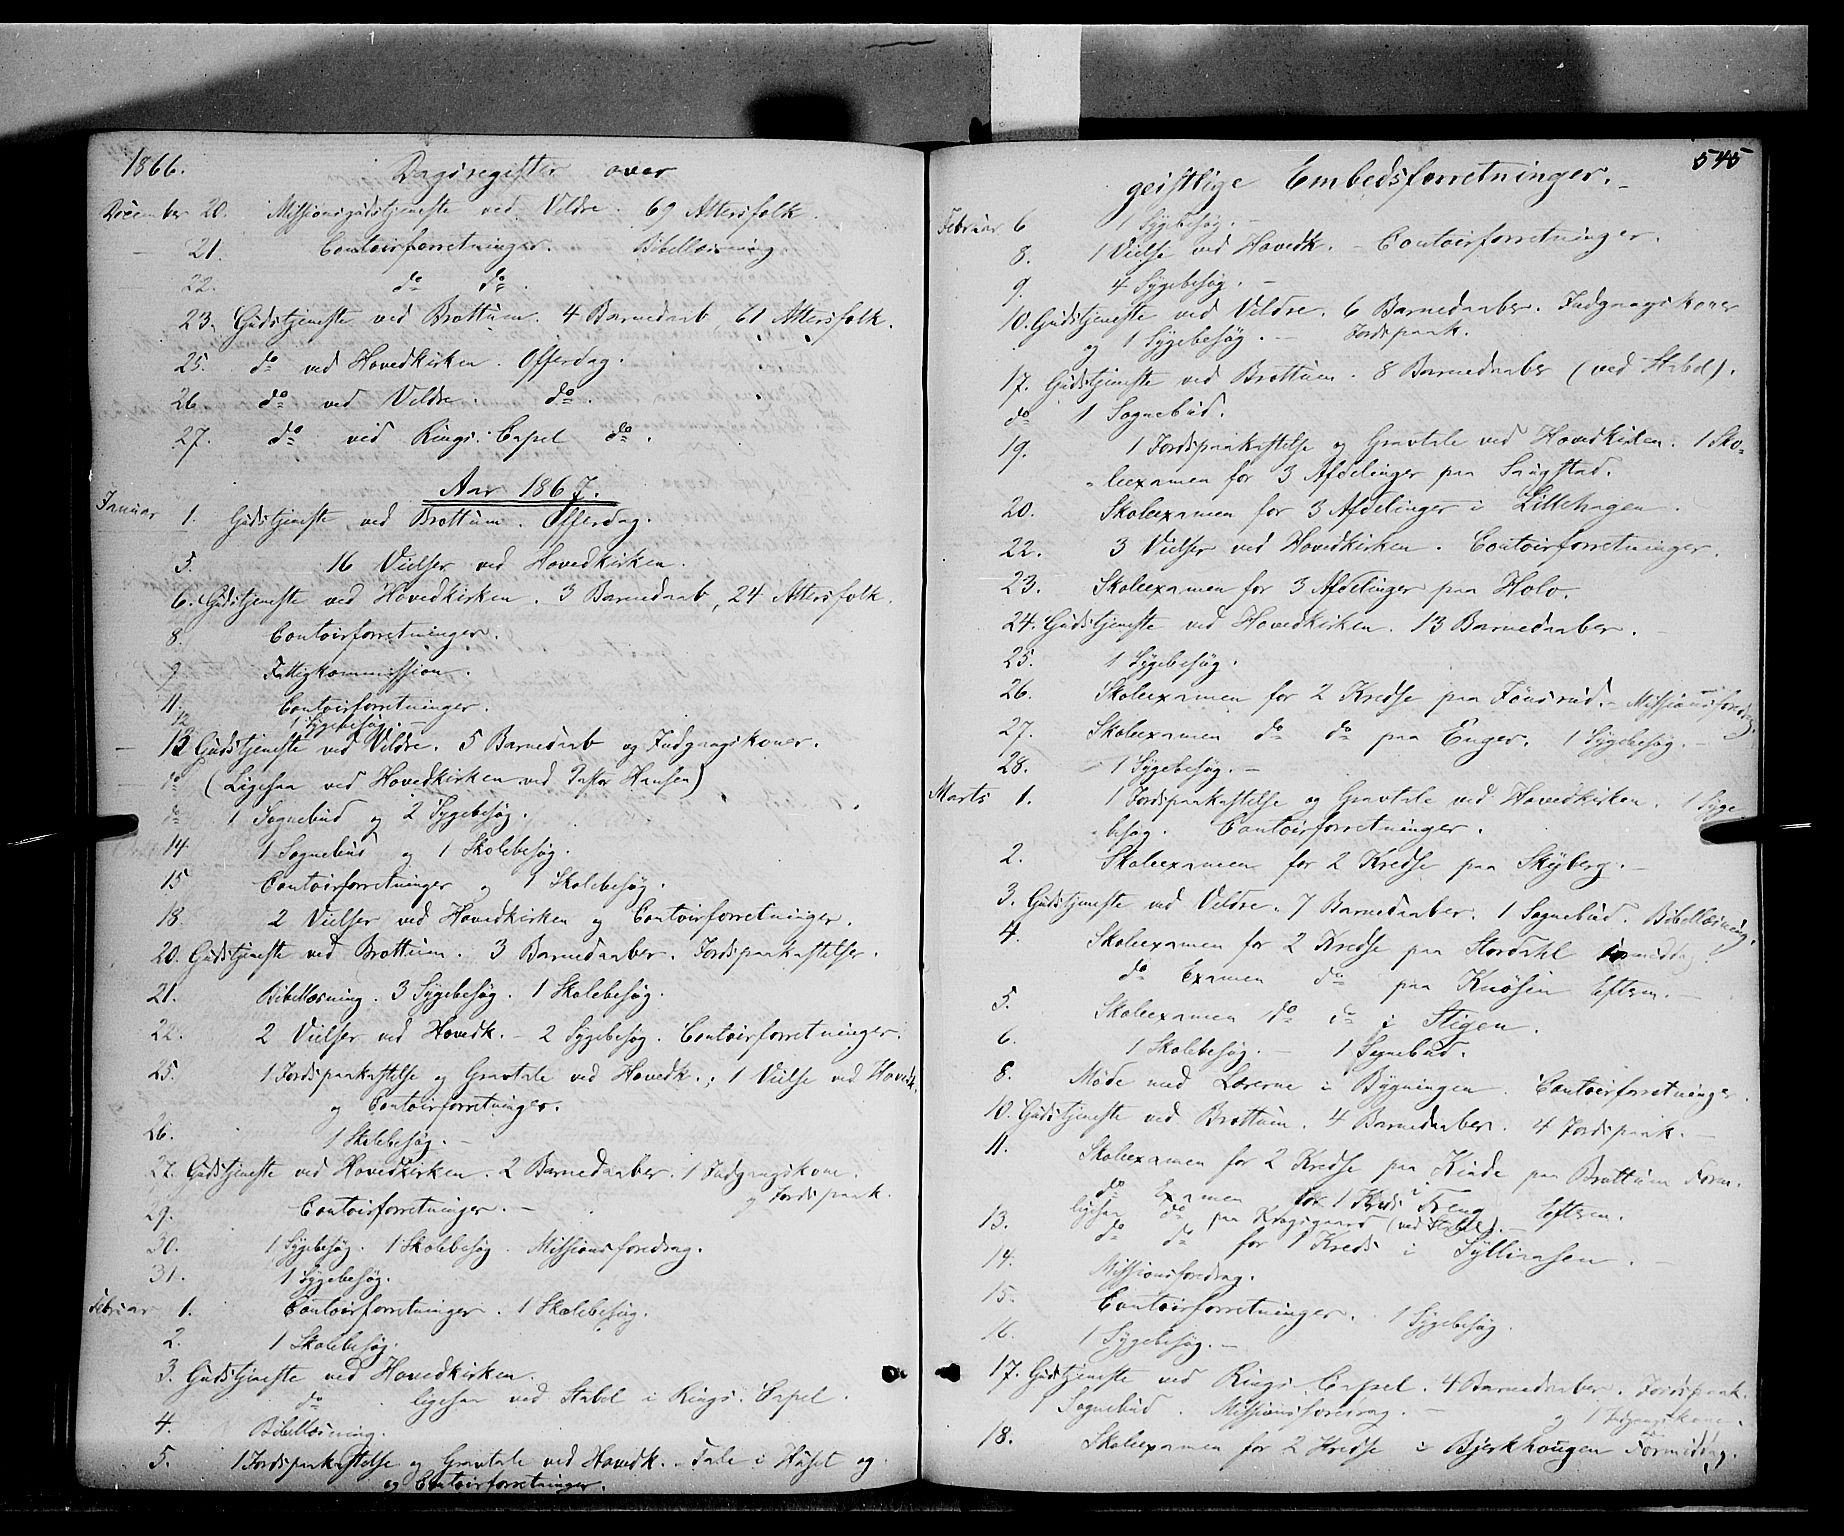 1866. Dagsregister over
December 20. Missionsgudstjeneste ved Veldre. 69 Altersfolk.
21. Contoirforretninger. Bibellæsning
22. do do.
23. Gudstjeneste ved Brøttum. 4 Barnedaab 61 Altersfolk.
25. do ved Hovedkirken. Offerdag.
26. do ved Veldre. do.
27. do ved Rings. Capel do.
Aar 1867.
Januar 1. Gudstjeneste ved Brøttum. Offerdag.
5. 16 Vielser ved Hovedkirken.
6. Gudstjeneste ved Hovedkirken. 3 Barnedaab, 24 Altersfolk.
8. Contoirforretninger.
9 Fattigkommission.
11. Contoirforretninger.
12. 1 Sygebesøg. -
13 Gudstjeneste ved Veldre. 5 Barnedaab og Indgangskoner.
do (Ligesaa ved Hovedkirken ved Pastor Hansen)
do 1 Sognebud og 2 Sygebesøg.
14 1 Sognebud og 1 Skolebesøg.
15 Contoirforretninger og 1 Skolebesøg.
18. 2 Vielser ved Hovedkirken og Contoirforretninger.
20. Gudstjeneste ved Brøttum. 3 Barnedaaber. Jordspaakastelser.
21. Bibellæsning. 3 Sygebesøg. 1 Skolebesøg.
22. 2 Vielser ved Hovedk. - 2 Sygebesøg. Contoirforretninger.
25. 1 Jordspaakastelse og Gravtale ved Hovedk.; 1 Vielse ved Hovedk.
og Contoirforretninger.
26. 1 Skolebesøg. -
27. Gudstjeneste ved Hovedkirken. 2 Barnedaaber. 1 Indgangskone.
og Jordspaak.
29. Contoirforretninger. -
30. 1 Sygebesøg. 1 Skolebesøg. Missionsforedrag.
31. 1 Sygebesøg.
Februar 1. Contoirforretninger. 1 Skolebesøg.
2. 1 Skolebesøg.
3. Gudstjeneste ved Hovedkirken.
do ligesaa ved Stabel i Rings. Capel.
4. Bibellæsning.
5. 1 Jordspaakastelse og Gravtale ved Hovedk. - Tale i Huset og
og Contoirforretninger.
geistlige Embedsforretninger. - 545
Februar 6 1 Sygebesøg. -
8. 1 Vielse ved Hovedk. - Contoirforretninger.
9. 4 Sygebesøg. -
10. Gudstjeneste ved Veldre. 6 Barnedaaber. Indgangskoner
og 1 Sygebesøg. - Jordspaak.
17. Gudstjeneste ved Brøttum. 8 Barnedaaber (ved Stabel).
do 1 Sognebud.
19. 1 Jordspaakastelse og Gravtale ved Hovedkirken. 1 Sko-
leexamen for 3 Afdelinger paa Saugstad.
20. Skoleexamen for 3 Afdelinger i Lillehagen.
22. 3 Vielser ved Hovedkirken. Contoirforretninger.
23. Skoleexamen for 3 Afdelinger paa Holo.
24. Gudstjeneste ved Hovedkirken. 13 Barnedaaber. -
25. 1 Sygebesøg.
26. Skoleexamen for 2 Kredse paa Fonsrud. - Missionsforedrag.
27. Skoleexamen do do paa Enger. 1 Sygebesøg. -
28. 1 Sygebesøg. -
Marts 1. 1 Jordspaakastelse og Gravtale ved Hovedkirken. 1 Syge
besøg. Contoirforretninger.
2. Skoleexamen for 2 Kredse paa Skyberg. -
3. Gudstjeneste ved Veldre. 7 Barnedaaber. 1 Sognebud. Bibellæsning.
4. Skoleexamen for 2 Kredse paa Stordahl Formiddag.
do Examen do paa Knøsen Efterm. -
5. Skoleexamen do do i Stigen.
6. 1 Skolebesøg. - 1 Sognebud.
8. Møde med Lærerne i Bygningen. Contoirforretninger.
10. Gudstjeneste ved Brøttum. 4 Barnedaaber. 4 Jordspaak. -
11. Skoleexamen for 2 Kredse paa Kinde paa Brøttum Form.
do Examen for 1 Kreds i Freng Efterm.
ligesaa do paa Kragsgaard (ved Stabel). -
13. do do for 1 Kreds i Syllinasen. -
14. Missionsforedrag.
15. Contoirforretninger. 1 Sygebesøg.
16. 1 Sygebesøg. -
17. Gudstjeneste ved Rings. Capel. 4 Barnedaaber. Jordspaak.
1 Sognebud. Missionsforedrag. - og 1 Indgangskone.
18. Skoleexamen for 2 Kredse i Bjerkhougen Formiddag.